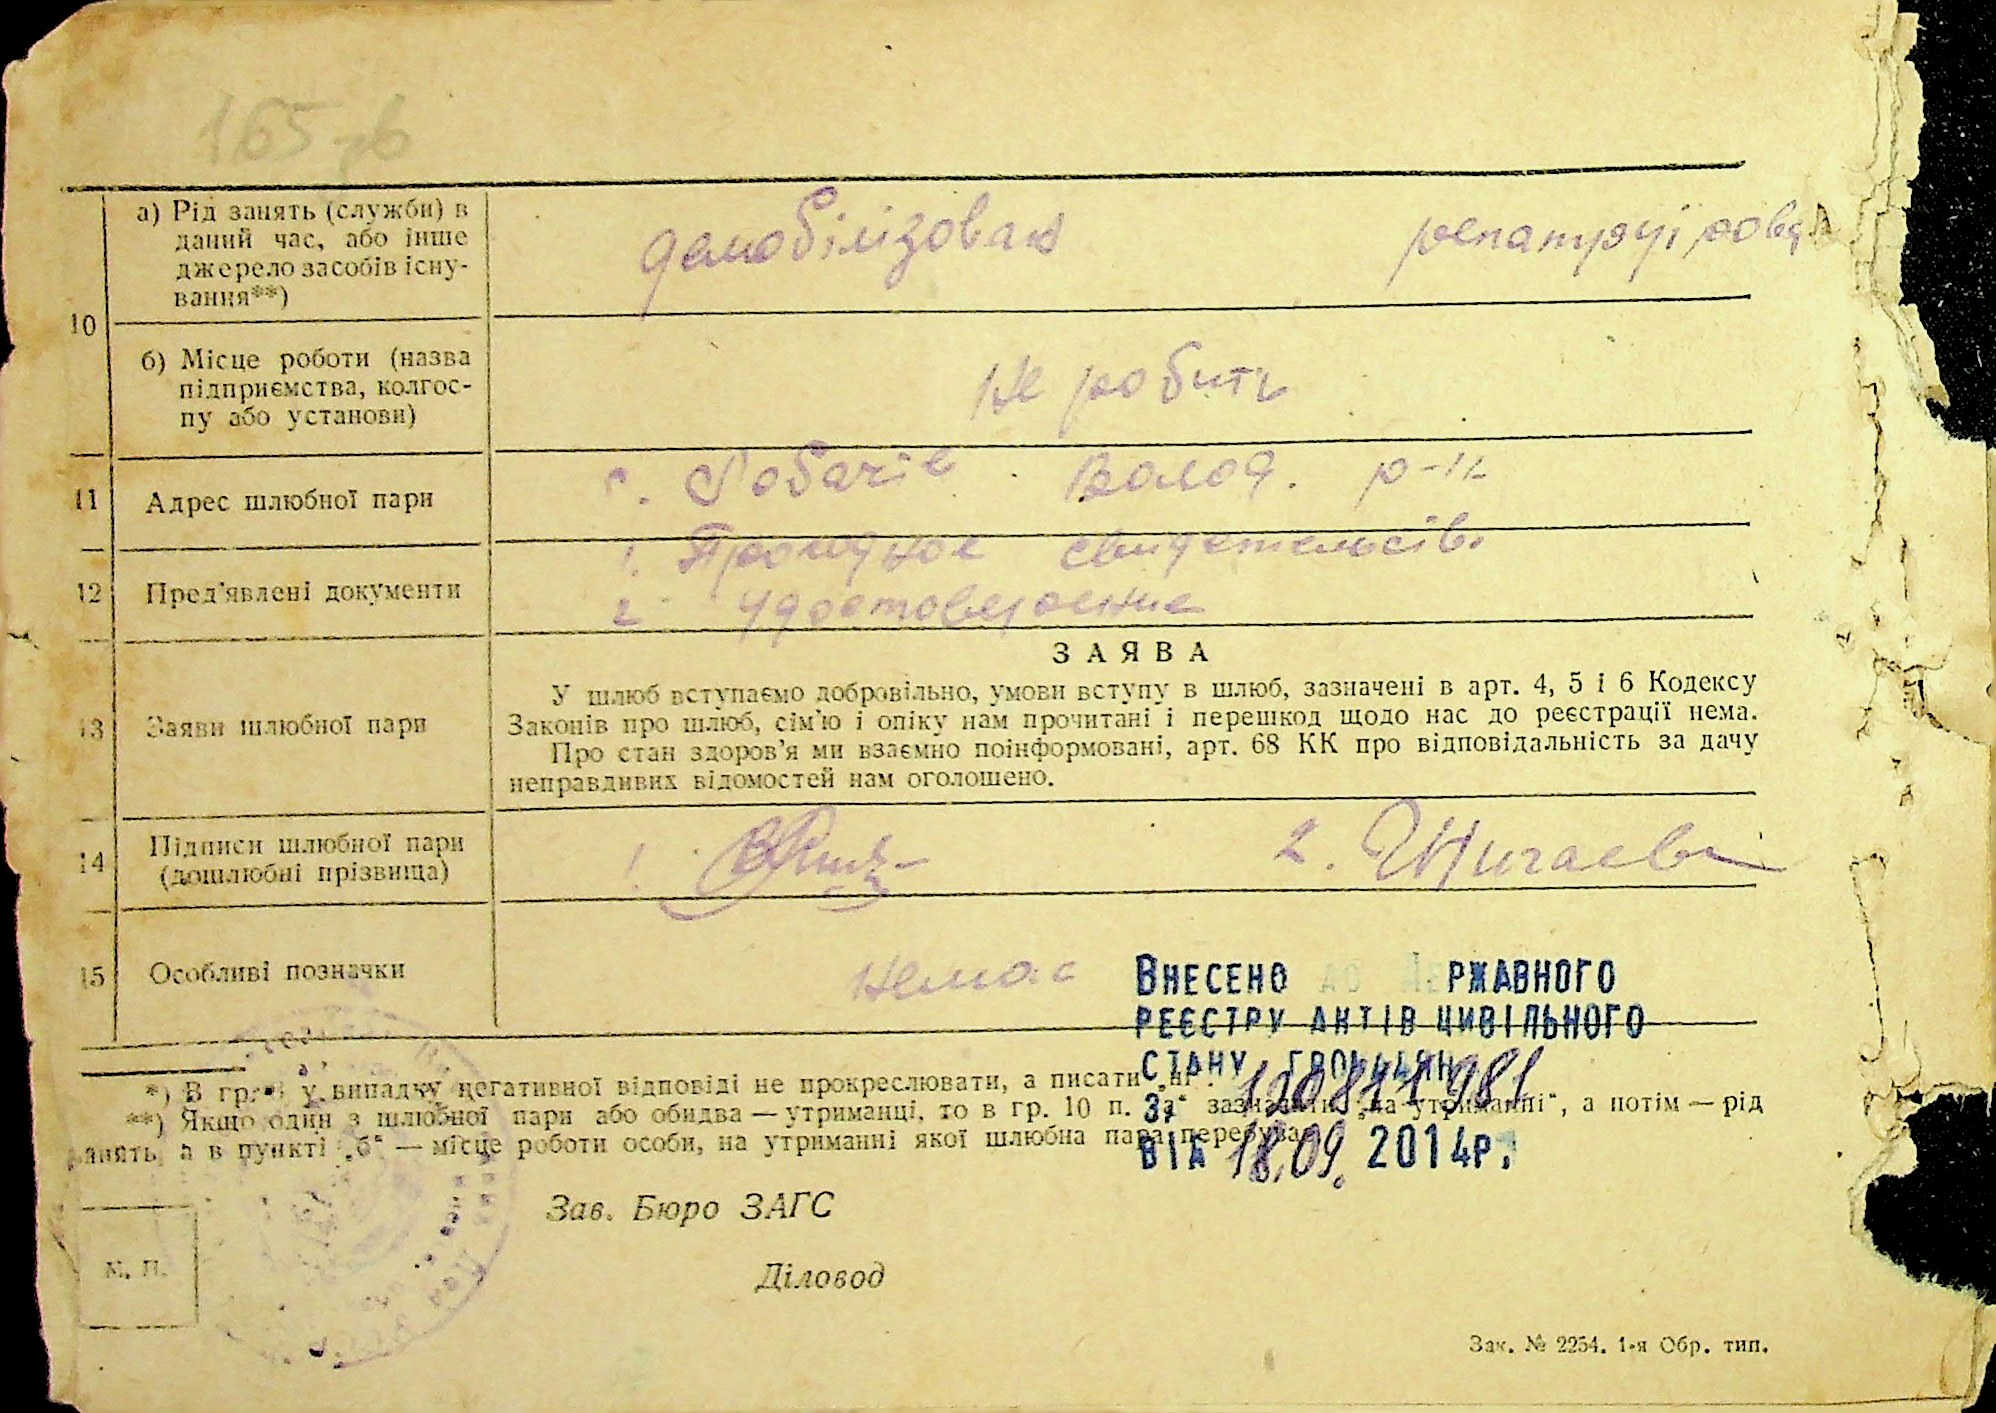 165 зв
10
а) Рід занять (служби) в
даний час, або інше
джерело засобів існу-
вання**)
демобілізован
репатруірован
б) Місце роботи (назва
підприємства, колгос-
пу або установи)
не робить
11
Адрес шлюбної пари
с. Лобачів Волод. р-н
12
Пред'явлені документи
1. Проходное свидетельсів.
2 удостоверение
13
Заяви шлюбної пари
ЗАЯВА
У шлюб вступаємо добровільно, умови вступу в шлюб, зазначені в арт. 4, 5 і 6 Кодексу
Законів про шлюб, сім'ю і опіку нам прочитані і перешкод щодо нас до реєстрації нема.
Про стан здоров'я ми взаємно поінформовані, арт. 68 КК про відповідальність за дачу
неправдивих відомостей нам оголошено.
14
Підписи шлюбної пари
(дошлюбні прізвища)
1.
2.
15
Особливі позначки
немає
Внесено до Державного
реєстру актів цивільного
стану громадян
за 120811981
від 18.09. 2014р.
*) В гр. у випадку негативної відповіді не прокреслювати, а писати „ні“.
**) Якщо один з шлюбної пари або обидва — утриманці, то в гр. 10 п. „а“ зазначати „на утриманні“, а потім — рід
занять, а в пункті „б“ — місце роботи особи, на утриманні якої шлюбна пара перебуває.
Зав. Бюро ЗАГС
М. П.
Діловод
Зак. № 2254. 1-я Обр. тип.